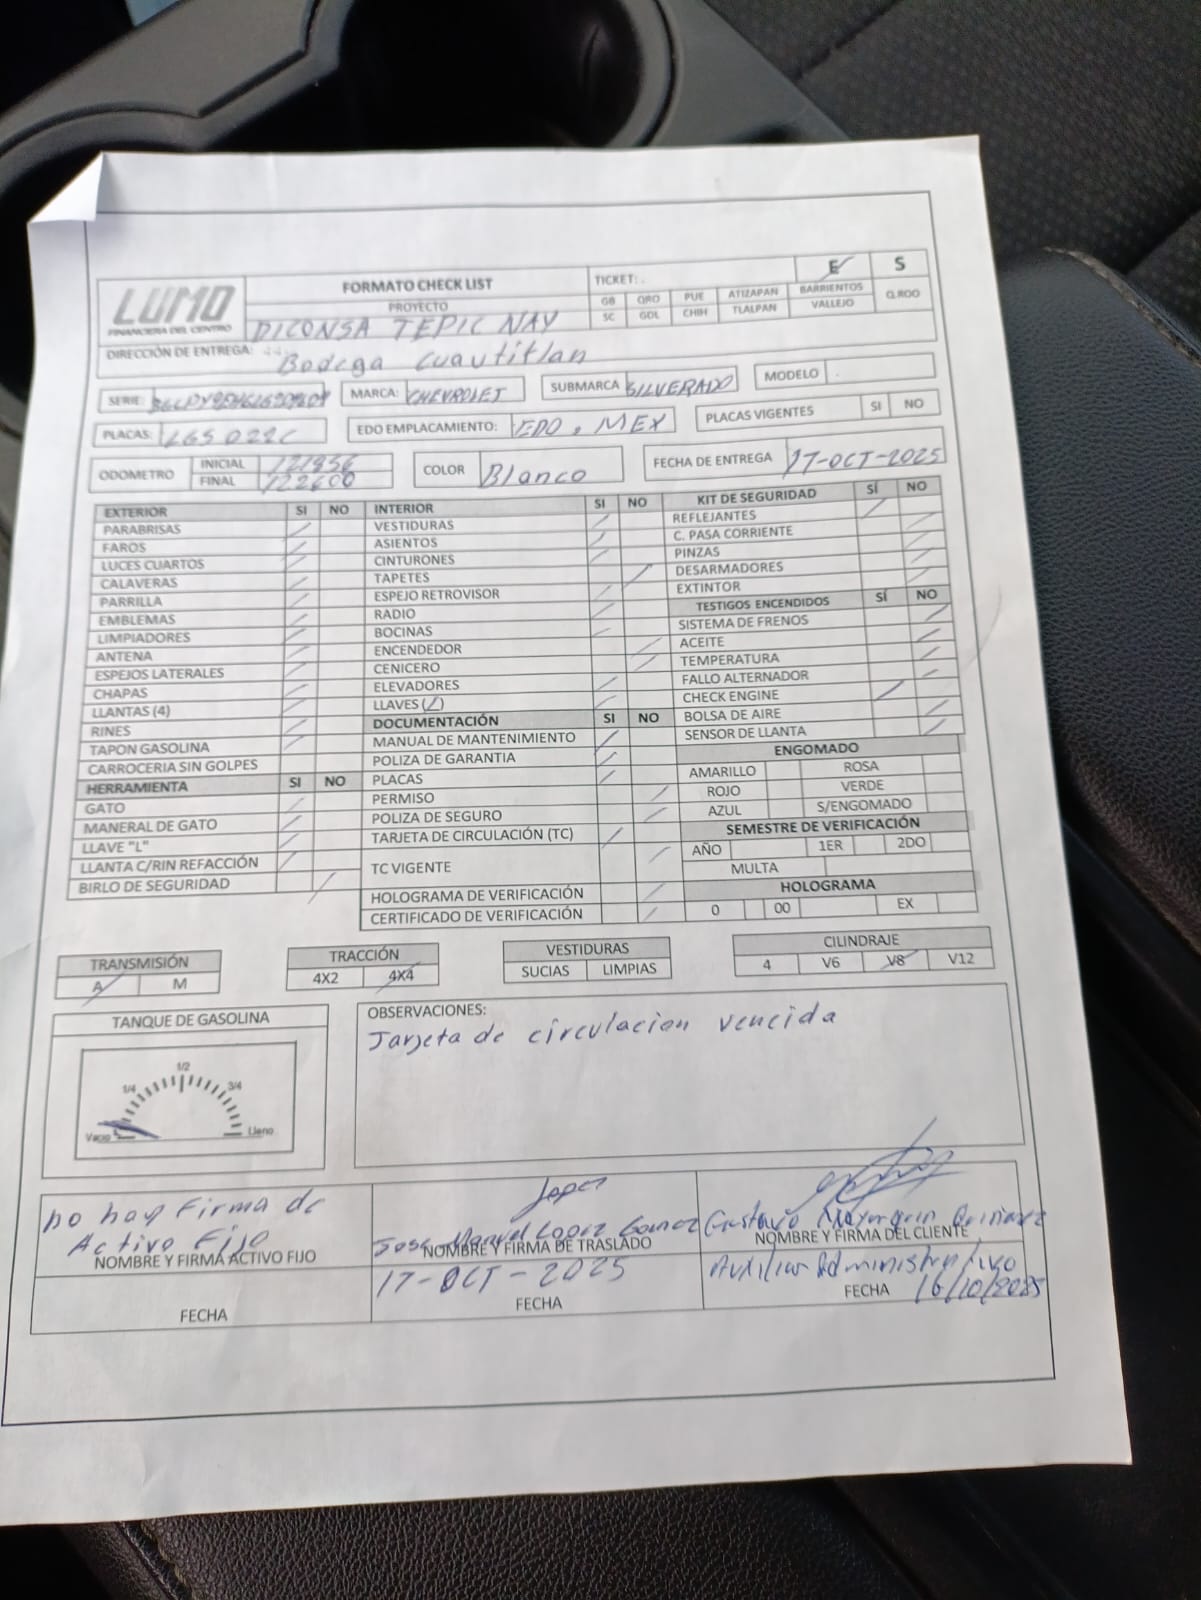 LUMO
FINANCIERA DEL CENTRO
FORMATO CHECK LIST
PROYECTO
DICONSA TEPIC NAY
TICKET:
E S
GB QRO PUE ATIZAPAN BARRIENTOS Q.ROO
SC GDL CHIH TLALPAN VALLEJO
DIRECCIÓN DE ENTREGA: Bodega Cuautitlan
SERIE:
MARCA: CHEVROLET
SUBMARCA SILVERADO
MODELO
PLACAS: LG5022C
EDO EMPLACAMIENTO: EDO. MEX
PLACAS VIGENTES SI NO
ODOMETRO INICIAL 121956
FINAL 122600
COLOR Blanco
FECHA DE ENTREGA 17-OCT-2025
EXTERIOR SI NO
PARABRISAS
FAROS
LUCES CUARTOS
CALAVERAS
PARRILLA
EMBLEMAS
LIMPIADORES
ANTENA
ESPEJOS LATERALES
CHAPAS
LLANTAS (4)
RINES
TAPON GASOLINA
CARROCERIA SIN GOLPES
HERRAMIENTA SI NO
GATO
MANERAL DE GATO
LLAVE "L"
LLANTA C/RIN REFACCIÓN
BIRLO DE SEGURIDAD
INTERIOR SI NO
VESTIDURAS
ASIENTOS
CINTURONES
TAPETES
ESPEJO RETROVISOR
RADIO
BOCINAS
ENCENDEDOR
CENICERO
ELEVADORES
LLAVES (1)
DOCUMENTACIÓN SI NO
MANUAL DE MANTENIMIENTO
POLIZA DE GARANTIA
PLACAS
PERMISO
POLIZA DE SEGURO
TARJETA DE CIRCULACIÓN (TC)
TC VIGENTE
HOLOGRAMA DE VERIFICACIÓN
CERTIFICADO DE VERIFICACIÓN
KIT DE SEGURIDAD SÍ NO
REFLEJANTES
C. PASA CORRIENTE
PINZAS
DESARMADORES
EXTINTOR
TESTIGOS ENCENDIDOS SÍ NO
SISTEMA DE FRENOS
ACEITE
TEMPERATURA
FALLO ALTERNADOR
CHECK ENGINE
BOLSA DE AIRE
SENSOR DE LLANTA
ENGOMADO
AMARILLO ROSA
ROJO VERDE
AZUL S/ENGOMADO
SEMESTRE DE VERIFICACIÓN
AÑO 1ER 2DO
MULTA
HOLOGRAMA
0 00 EX
TRANSMISIÓN
A M
TRACCIÓN
4X2 4X4
VESTIDURAS
SUCIAS LIMPIAS
CILINDRAJE
4 V6 V8 V12
TANQUE DE GASOLINA
1/4 1/2 3/4
Vacio Lleno
OBSERVACIONES:
Tarjeta de circulacion vencida
no hay Firma de
Activo Fijo
NOMBRE Y FIRMA ACTIVO FIJO
FECHA
Lopez
Jose Manuel Lopez Gomez
NOMBRE Y FIRMA DE TRASLADO
17-OCT-2025
FECHA
Gustavo
NOMBRE Y FIRMA DEL CLIENTE
Auxiliar Administrativo
FECHA 16/10/2025